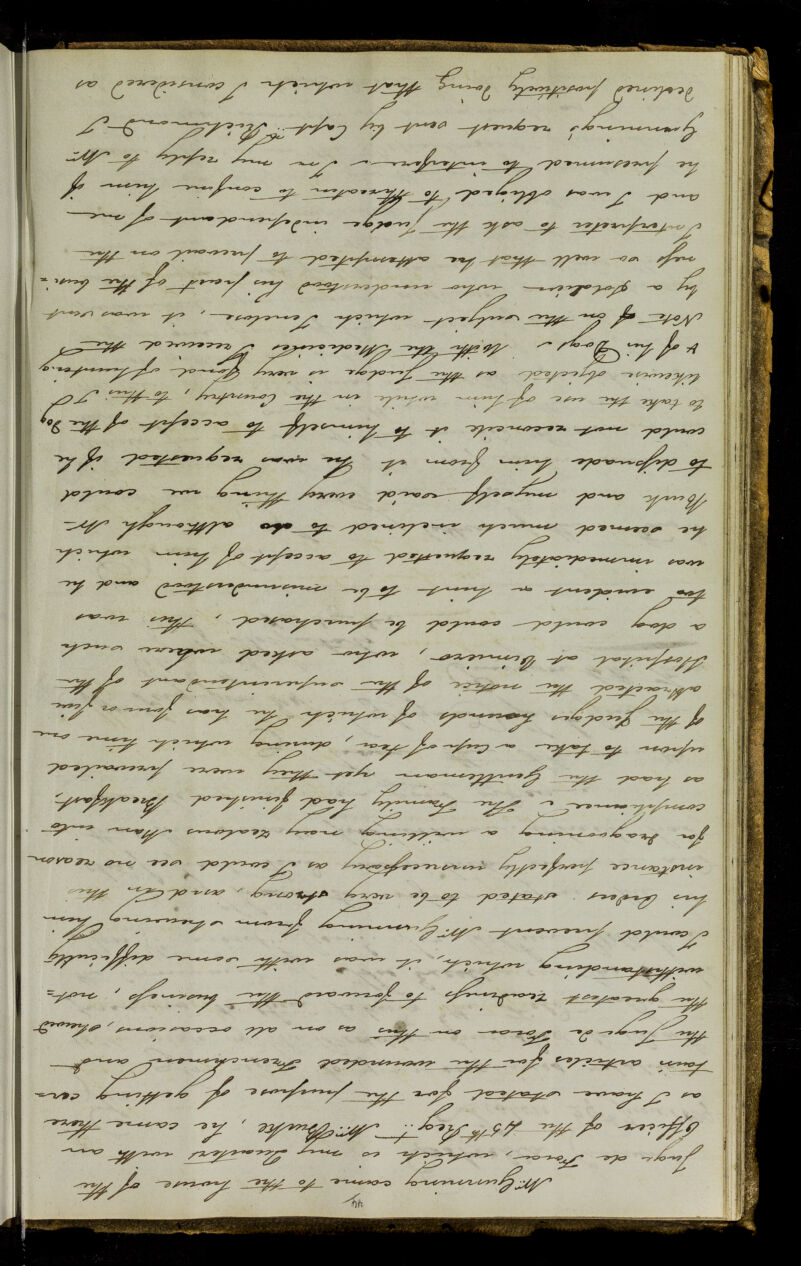 44
Mr. Gunning came to the house of the
Juge de Fora, which is my Quarters with an
Officer of the 45th Regt. Mr. Burke, he came there
as I have stated for the purpose of getting cer=
tain articles for the wounded Frenchmen and
the Juge de Fora on this as on all occasions, shewed
the greatest readiness to forward the business, not=
withstanding which, it was with some difficulty
I could prevent Mr. Gunning from shewing him
his Orders stated to be very strong, and in this
instance perfectly unnecessary as I could see no reason
for dragooning a willing nay zealous Man into
compliance. The Family had finished Breakfast,
as had the Gentlemen yet they were prevailed
upon to take a Cup of tea, during which time one
of the Judges hounds of which he has four or five
attracted the notice of the superintendant of the
Hospital at Vimiero, who asked where such
a dog could be purchased, this was
too evident a hint to be misunderstood and he
was immediately requested to accept of him which
he seemed much inclined to do although Mr.
Burke and myself said every thing we could
to dissuade him from it he was requested if he
could not reconcile it to himself to accept of the Dog
to take the use of him while in the Country, to this I
likewise objected as the Judge is very fond of hunting
& of his Dogs. With the Medicines I received the
Note of on the subject which I enclose, it was sent
by a soldier who understood his part of the busi=
ness so well that he attempted to prevail on the
Interpreter to ask the Judge independant of me
and I was obliged to threaten to confine him if
he presumed to interfere. In my reply to Mr.
Gunning's request sent by Capt. Richmond I
declined positively doing that which I considered as